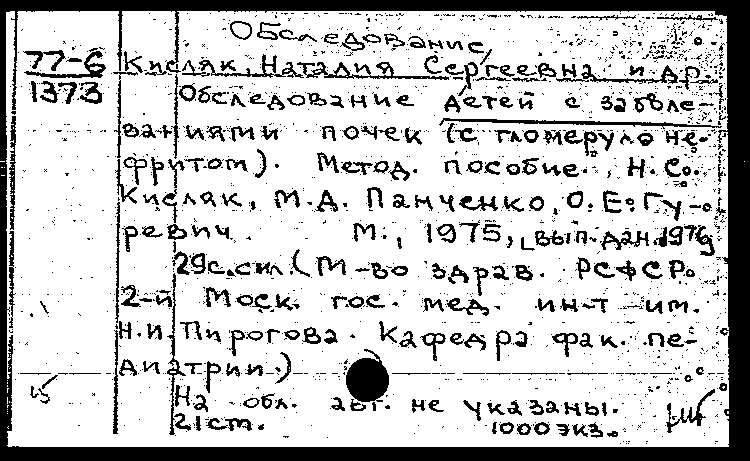 Обследование
77-6 Кисляк, Наталия Сергеевна и др.
1373 Обследование детей с заболе-
ваниями почек (с гломеруло не-
фритом). Метод. пособие. Н. С.
Кисляк, М. Д. Панченко, О. Е. Гу-
ревич. М., 1975, [вып. дан. 1976]
29с. сил. (М-во здрав. РСФСР.
2-й Моск. гос. мед. ин-т им.
Н.И. Пирогова. Кафедра фак. пе-
диатрии.)
На обл. авт. не указаны.
21см. 1000 экз.